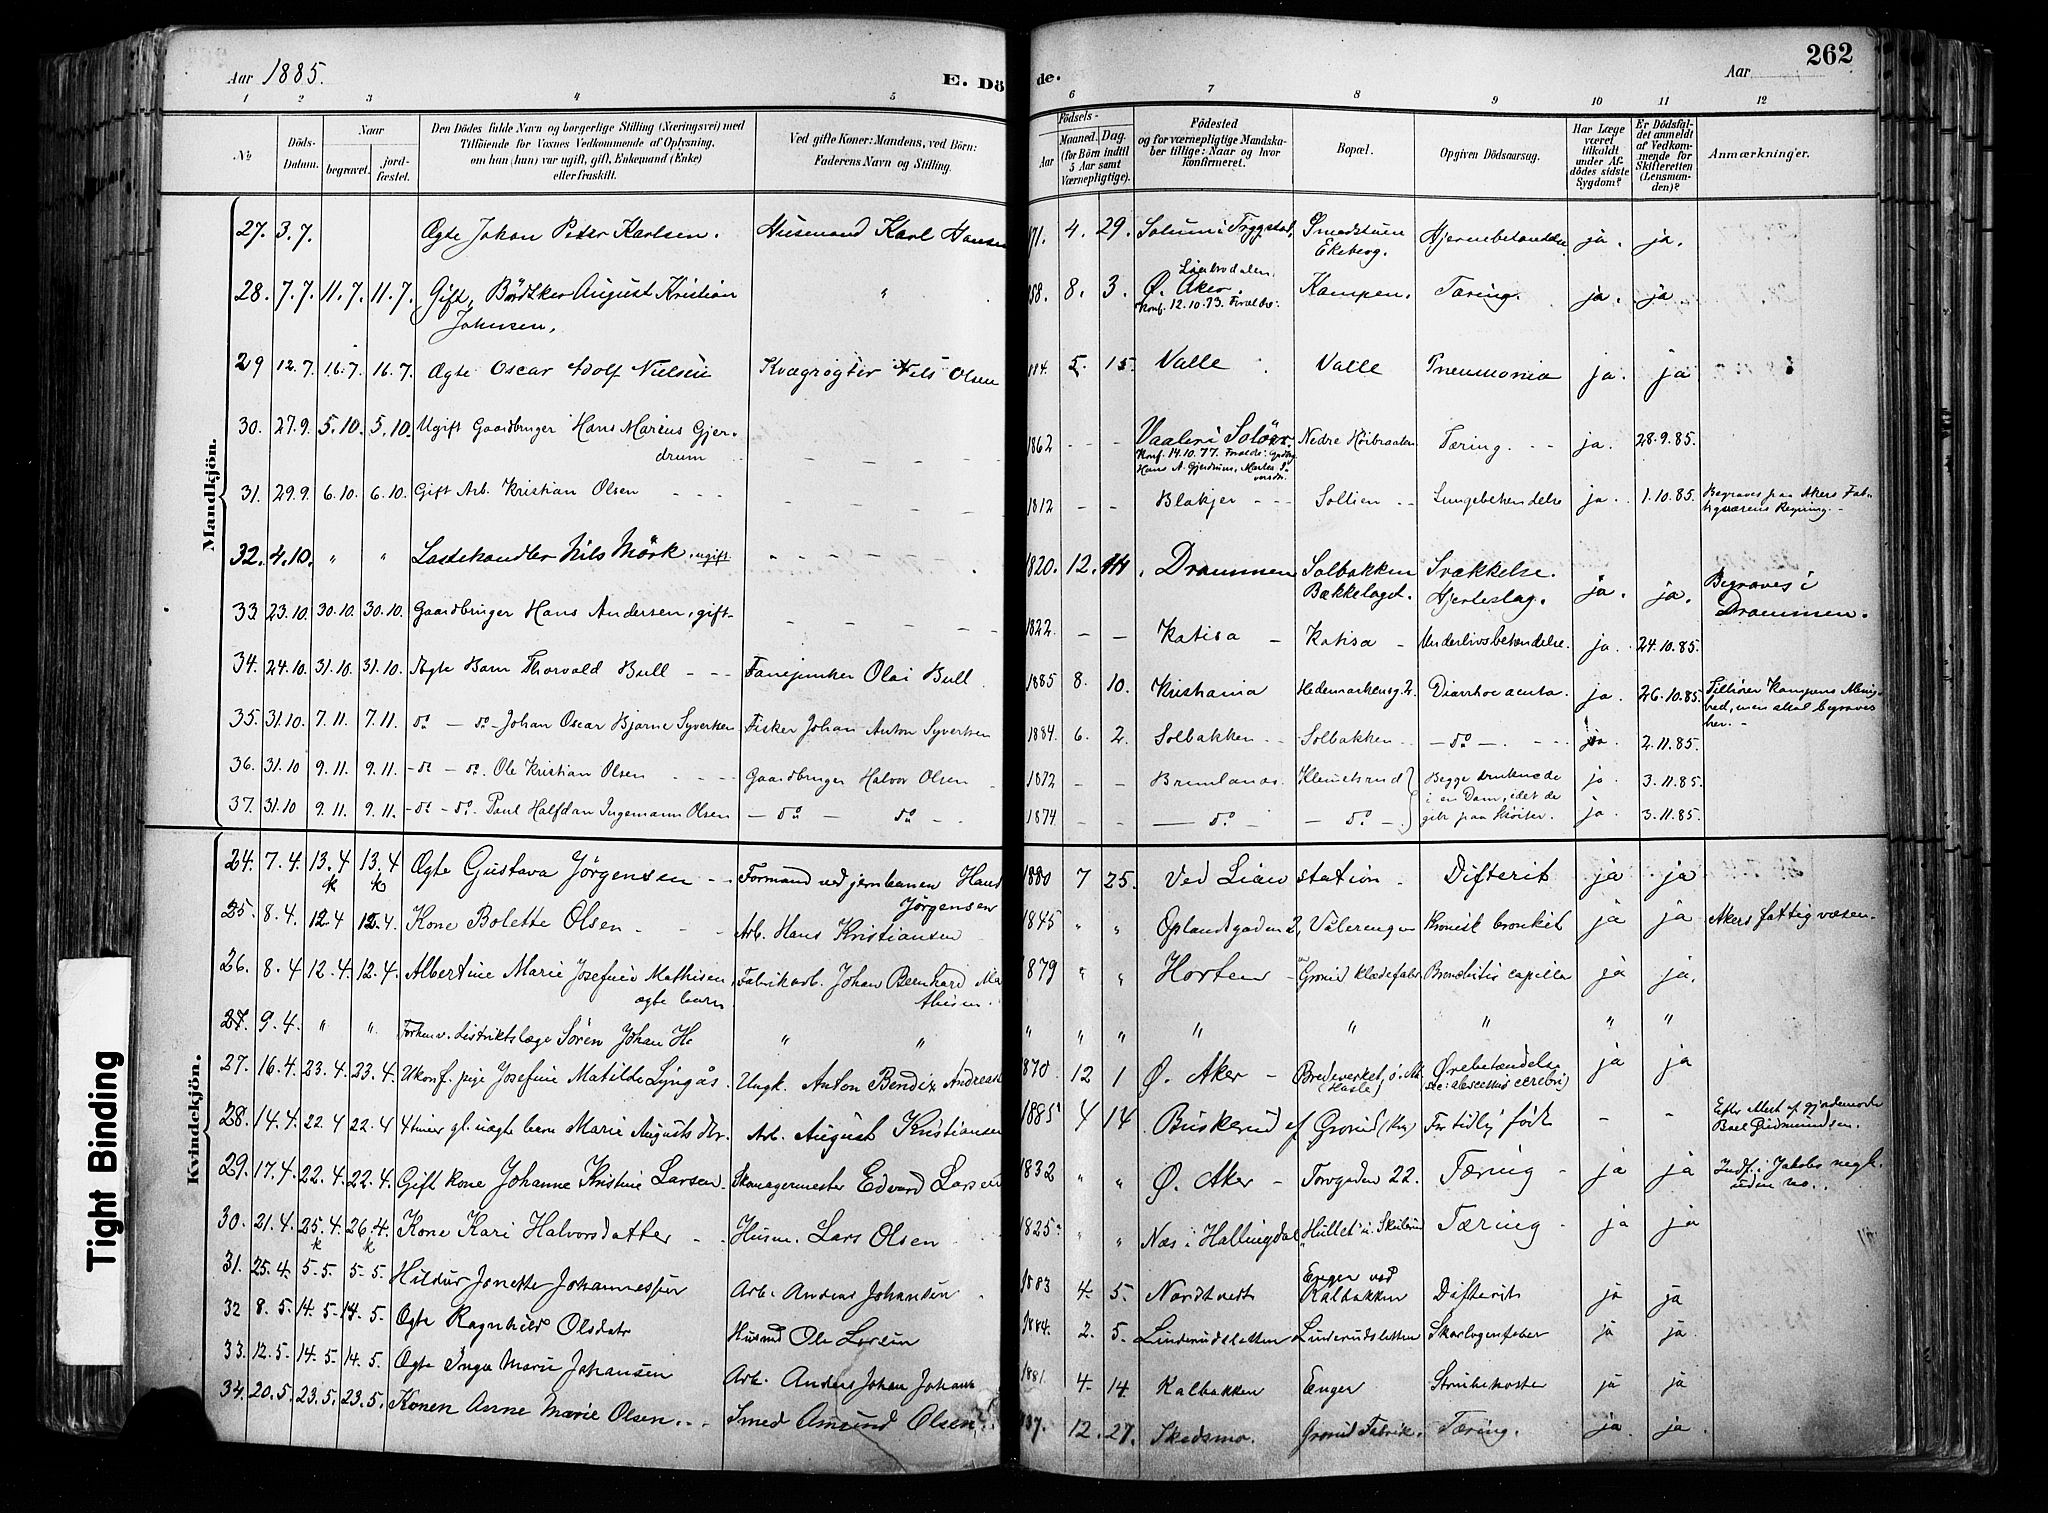 Aar 1885.
E. Dö de.
Aar
262
1 2 3 4 5 6 7 8 9 10 11 12
№
Döds-Datum.
Naar
begravet.
jord-fæstet.
Den Dödes fulde Navn og borgerlige Stilling (Næringsvei) med
Tilföiende for Voxnes Vedkommende af Oplysning,
om han (hun) var ugift, gift, Enkemand (Enke)
eller fraskilt.
Ved gifte Koner: Mandens, ved Börn:
Faderens Navn og Stilling.
Födsels-
Aar
Maaned.
Dag.
(for Börn indtil
5 Aar samt
Værnepligtige).
Födested
og for værnepligtige Mandska-
ber tillige: Naar og hvor
konfirmeret.
Bopæl.
Opgiven Dödsaarsag.
Har Læge
været
tilkaldt
under Af-
dödes sidste
Sygdom?
Er Dödsfal-
det anmeldt
af Vedkom-
mende for
Skifteretten
(Lensman-
den)?
Anmærkninger.
Mandkjön.
27. 3.7. Ægte Johan Peter Karlsen. Husmand Karl Hansen 71. 4. 29. Solum i Trygstad, Smedstuen Ekeberg. Hjernebetændelse ja. ja.
28. 7.7. 11.7. 11.7. Gift, Bödtker August Kristian Johnsen, " 58. 8. 3. Ø. Aker. Konf. 12.10.73. Kampen. Tæring. ja. ja.
29 12.7. 16.7. 16.7. Ægte Oscar Adolf Nielsen Kvægrøgter Nils Olsen 5. 15. Valle Valle Pneumonia ja. ja
30. 27.9. 5.10. 5.10. Ugift Gaardbruger Hans Marius Gjer-
drum 1862 - - Vaaler i Solör. Konf. 14.10.77. Hans A. Gjerdrum, Nedre Höibraaten Tæring. ja. 28.9.85.
31. 29.9. 6.10. 6.10. Gift Arb. Kristian Olsen 1812 - - Blakjer Soltien Lungebetændelse ja. 1.10.85. Begraves paa Akers Fat-
tigvæsens Regning.
32. 4.10. " " Lastehandler Nils Mörk, ugift 1820. 12. Drammen Solbakken Bækkelaget. Svækkelse. Hjerteslag. ja. ja. Begraves i
Drammen.
33. 23.10. 30.10. 30.10. Gaardbruger Hans Andersen, gift 1822. - - Katisa Katisa Underlivsbetændelse. ja. 24.10.85.
34. 24.10. 31.10. 31.10. Ægte Barn Thorvald Bull Fanejunker Olai Bull 1885 8. 10. Kristiania Hedemarkensg. 2. Diarrhoe acuta. ja. 26.10.85. Tilhører Kampens Menig-
hed, men skal begraves
her.
35. 31.10. 7.11. 7.11. do - do - Johan Oscar Bjarne Syvertsen Fisker Johan Anton Syvertsen 1884. 6. 2. Solbakken Solbakken - do - ja. 2.11.85.
36. 31.10 9.11. 9.11. - do - do. Ole Kristian Olsen Gaardbruger Halvor Olsen 1872 - - Brenlanas. Klemetsrud Begge druknede ja 3.11.85.
i en Dam, idet de
37. 31.10 9.11. 9.11. - do - do. Paul Halfdan Ingemann Olsen - do do 1874 - - do - - do - gik paa Skøiter. ja. 3.11.85.
Kvindekjön.
24. 7.4. 13.4 k 13.4 k Ægte Gustava Jörgensen Formand ved jernbanen Hans
Jörgensen 1880 7 25. Ved Lian station Difterit ja ja
25. 8.4. 12.4 12.4. Kone Bolette Olsen Arb. Hans Kristiansen 1845 " " Oplandsgaden 2, Vålerengen Kronisk bronkit ja ja Akers fattigvæsen.
26. 8.4 12.4. 12.4. Albertine Marie Josefine Mathisen, ægte barn Fabrikarb. Johan Bernhard Ma-
thisen. 1879 " " Horten Grorud klædefabr. Bronchitis capillar ja ja.
27. 9.4. " " Forhenv. distriktslæge Sören Johan H " " " " " " " " " "
27. 16.4. 23.4. 23.4. Ukonf. pige Josefine Matilde Lyngås. Ungk. Anton Bendix Andreas 1870. 12 1 Ø. Aker Bredeverket, ö. Ak (Hasle) Ørebetændelse (abscessus cerebri) ja ja
28. 14.4. 22.4 22.4 4 timer gl. uægte barn Marie Augusts dtr. Arb. August Kristiansen 1885 4 14 Buskerud Grorud For tidlig född - -
29. 17.4. 22.4. 22.4. Gift kone Johanne Kristine Larsen Skomagermester Edvard Larsen 1832 " " Ø. Aker Torvgaden 22. Tæring ja ja Indf. i Jakobs megh.
uden no.
30. 21.4. 25.4. k 26.4. k Kone Kari Halvorsdatter Husm. Lars Olsen 1825 " " Næs i Hallingdal Hullet u. Tæring ja ja
31. 25.4. 5.5. 5.5. Hildur Jonette Johannessen Arb. Anders Johansen 1883 4. 5. Nordtvedt Enger ved Kalbakken Difterit ja ja
32 8.5. 14.5. 14.5. Ægte Ragnhild Olsdatr Husmd Ole Larsen 1884. 2. 5. Linderudsletten Linderudsletten Skarlagensfeber ja ja
33. 12.5. 14.5. 14.5. Ægte Inga Marie Johansen Arb. Anders Johan Johans 1881. 4. 14. Kalbakken Enger Strubehoste ja ja
34. 20.5. 23.5. 23.5. Konen Anne Marie Olsen. Smed Amund Olsen 12. 27. Skedsmo. Grorud Fabrik. Tæring. ja. ja.
Tight Binding